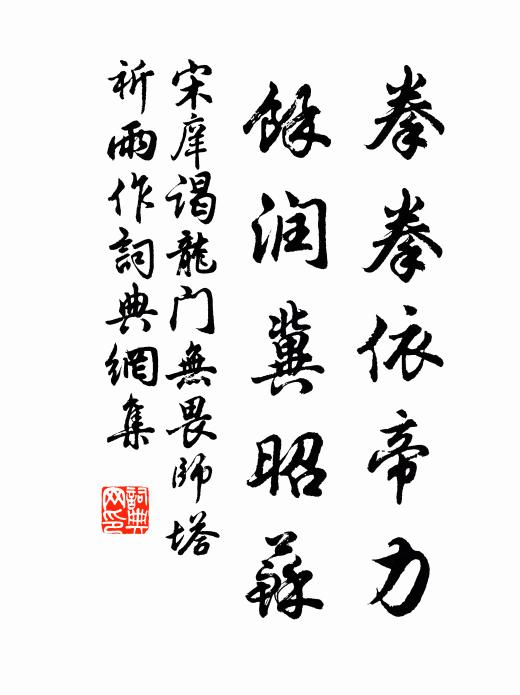 拳拳依帝力
餘润冀昭蘇
宋庠谒龍门無畏師塔
祈雨作詞典網集
詞典网印